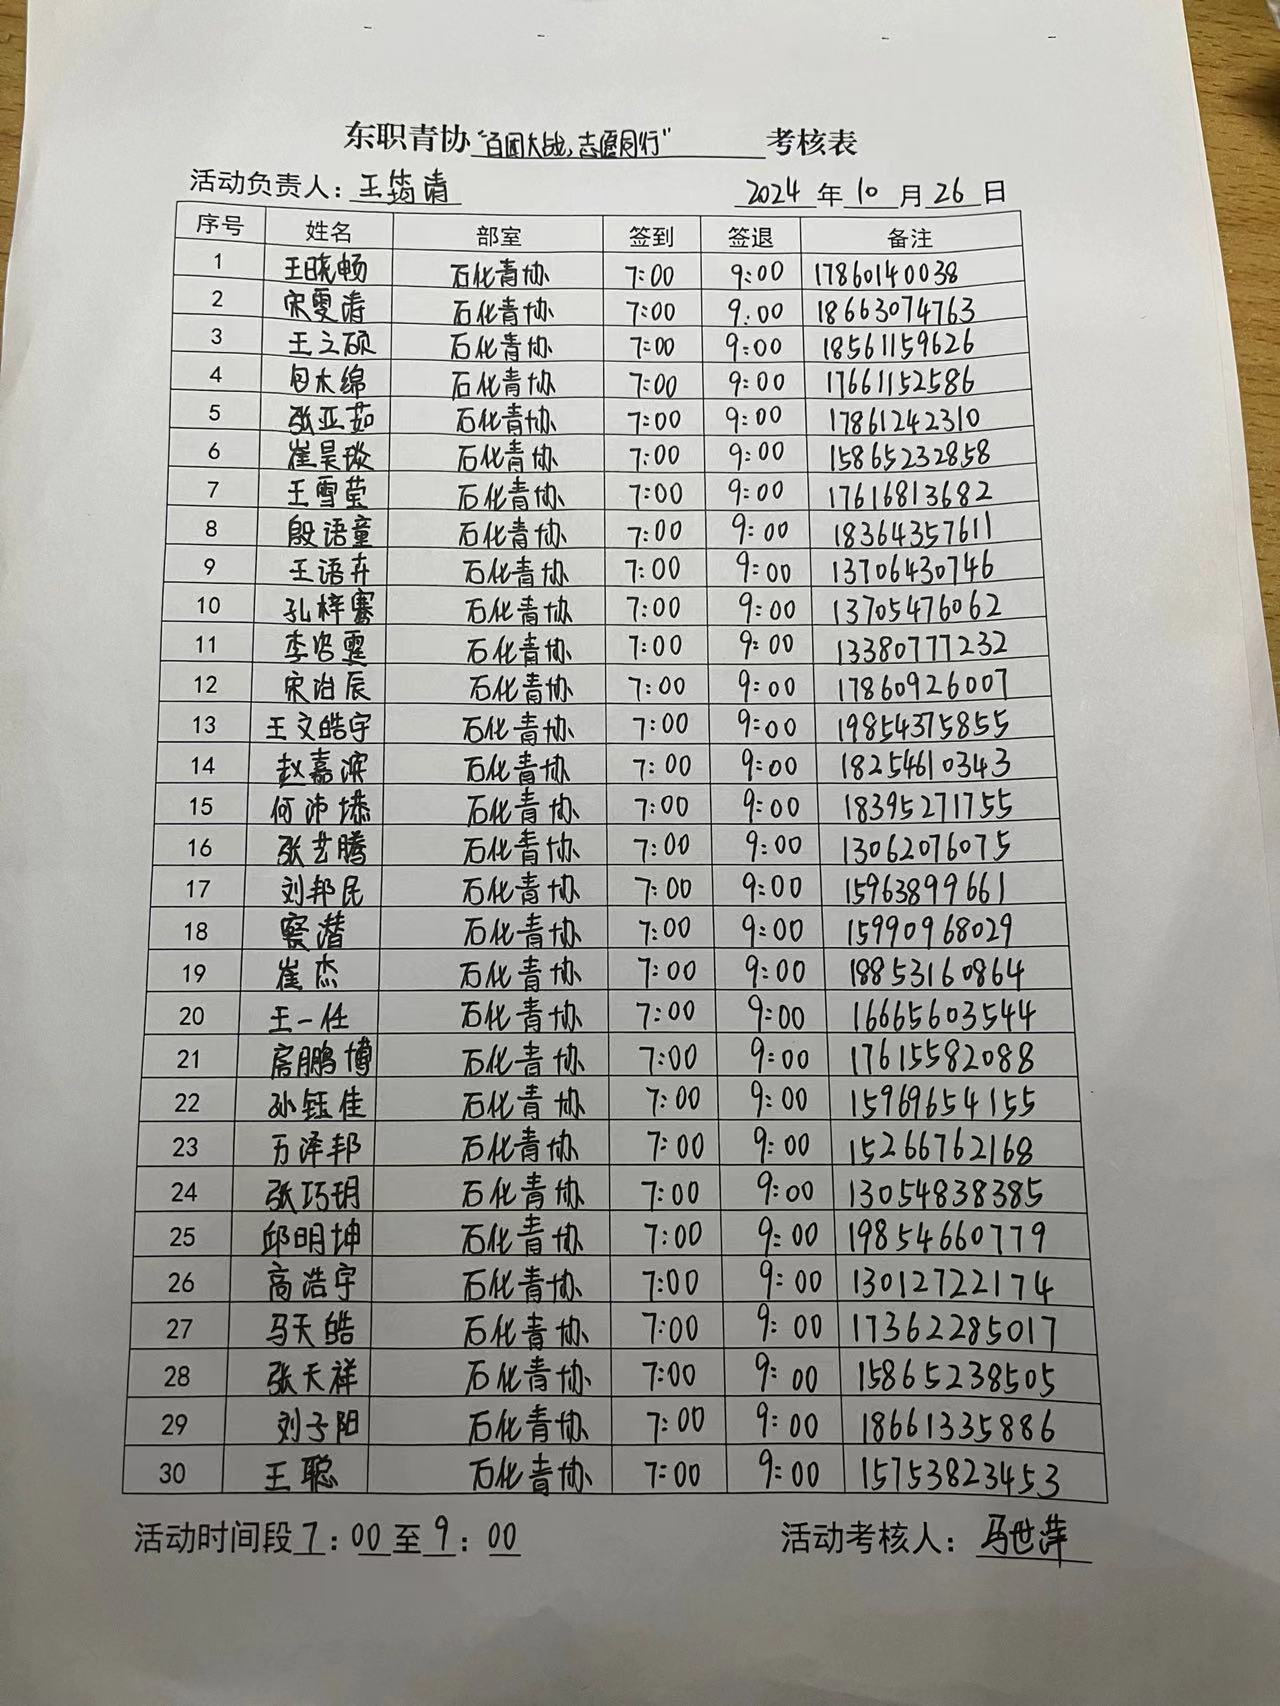 东职青协“百团大战，志愿同行”考核表
活动负责人：王筠清 2024年10月26日
序号 姓名 部室 签到 签退 备注
1 王晓畅 石化青协 7:00 9:00 17860140038
2 宋雯涛 石化青协 7:00 9:00 18663074763
3 王之硕 石化青协 7:00 9:00 18561159626
4 白木绵 石化青协 7:00 9:00 17661152586
5 张亚茹 石化青协 7:00 9:00 17861242310
6 崔昊琰 石化青协 7:00 9:00 15865232858
7 王雪莹 石化青协 7:00 9:00 17616813682
8 殷语童 石化青协 7:00 9:00 18364357611
9 王语卉 石化青协 7:00 9:00 13706430746
10 孔梓骞 石化青协 7:00 9:00 13705476062
11 李浴霆 石化青协 7:00 9:00 13380777232
12 宋治辰 石化青协 7:00 9:00 17860926007
13 王文皓宇 石化青协 7:00 9:00 19854375855
14 赵嘉滨 石化青协 7:00 9:00 18254610343
15 何沛 石化青协 7:00 9:00 18395271755
16 张艺腾 石化青协 7:00 9:00 13062076075
17 刘邦民 石化青协 7:00 9:00 15963899661
18 潜 石化青协 7:00 9:00 15990968029
19 崔杰 石化青协 7:00 9:00 18853160864
20 王一任 石化青协 7:00 9:00 16665603544
21 房鹏博 石化青协 7:00 9:00 17615582088
22 孙钰佳 石化青协 7:00 9:00 15969654155
23 万泽邦 石化青协 7:00 9:00 15266762168
24 张巧玥 石化青协 7:00 9:00 13054838385
25 邱明坤 石化青协 7:00 9:00 19854660779
26 高浩宇 石化青协 7:00 9:00 13012722174
27 马天皓 石化青协 7:00 9:00 17362285017
28 张天祥 石化青协 7:00 9:00 15865238505
29 刘子阳 石化青协 7:00 9:00 18661335886
30 王聪 石化青协 7:00 9:00 15753823453
活动时间段7：00至9：00 活动考核人：马世萍